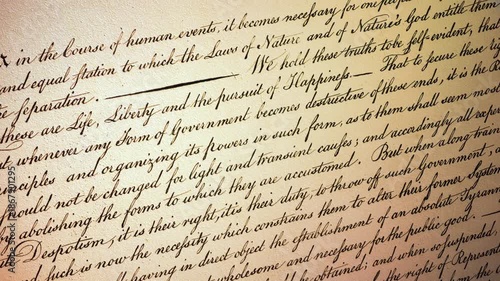 in the Course of human events, it becomes necessary for one people
and equal station to which the Laws of Nature and of Nature's God entitle them
separation. We hold these truths to be self-evident, that
these are Life, Liberty and the pursuit of Happiness.— That to secure these
whenever any Form of Government becomes destructive of these ends, it is the R
principles and organizing its powers in such form, as to them shall seem most
should not be changed for light and transient causes; and accordingly all exper
abolishing the forms to which they are accustomed. But when a long train
Despotism, it is their right, it is their duty, to throw off such Government,
and such is now the necessity which constrains them to alter their former System
having in direct object the establishment of an absolute Tyran
wholesome and necessary for the public good.
should be obtained; and when so suspended,
the right of Represen
Adobe Stock | #1867901295